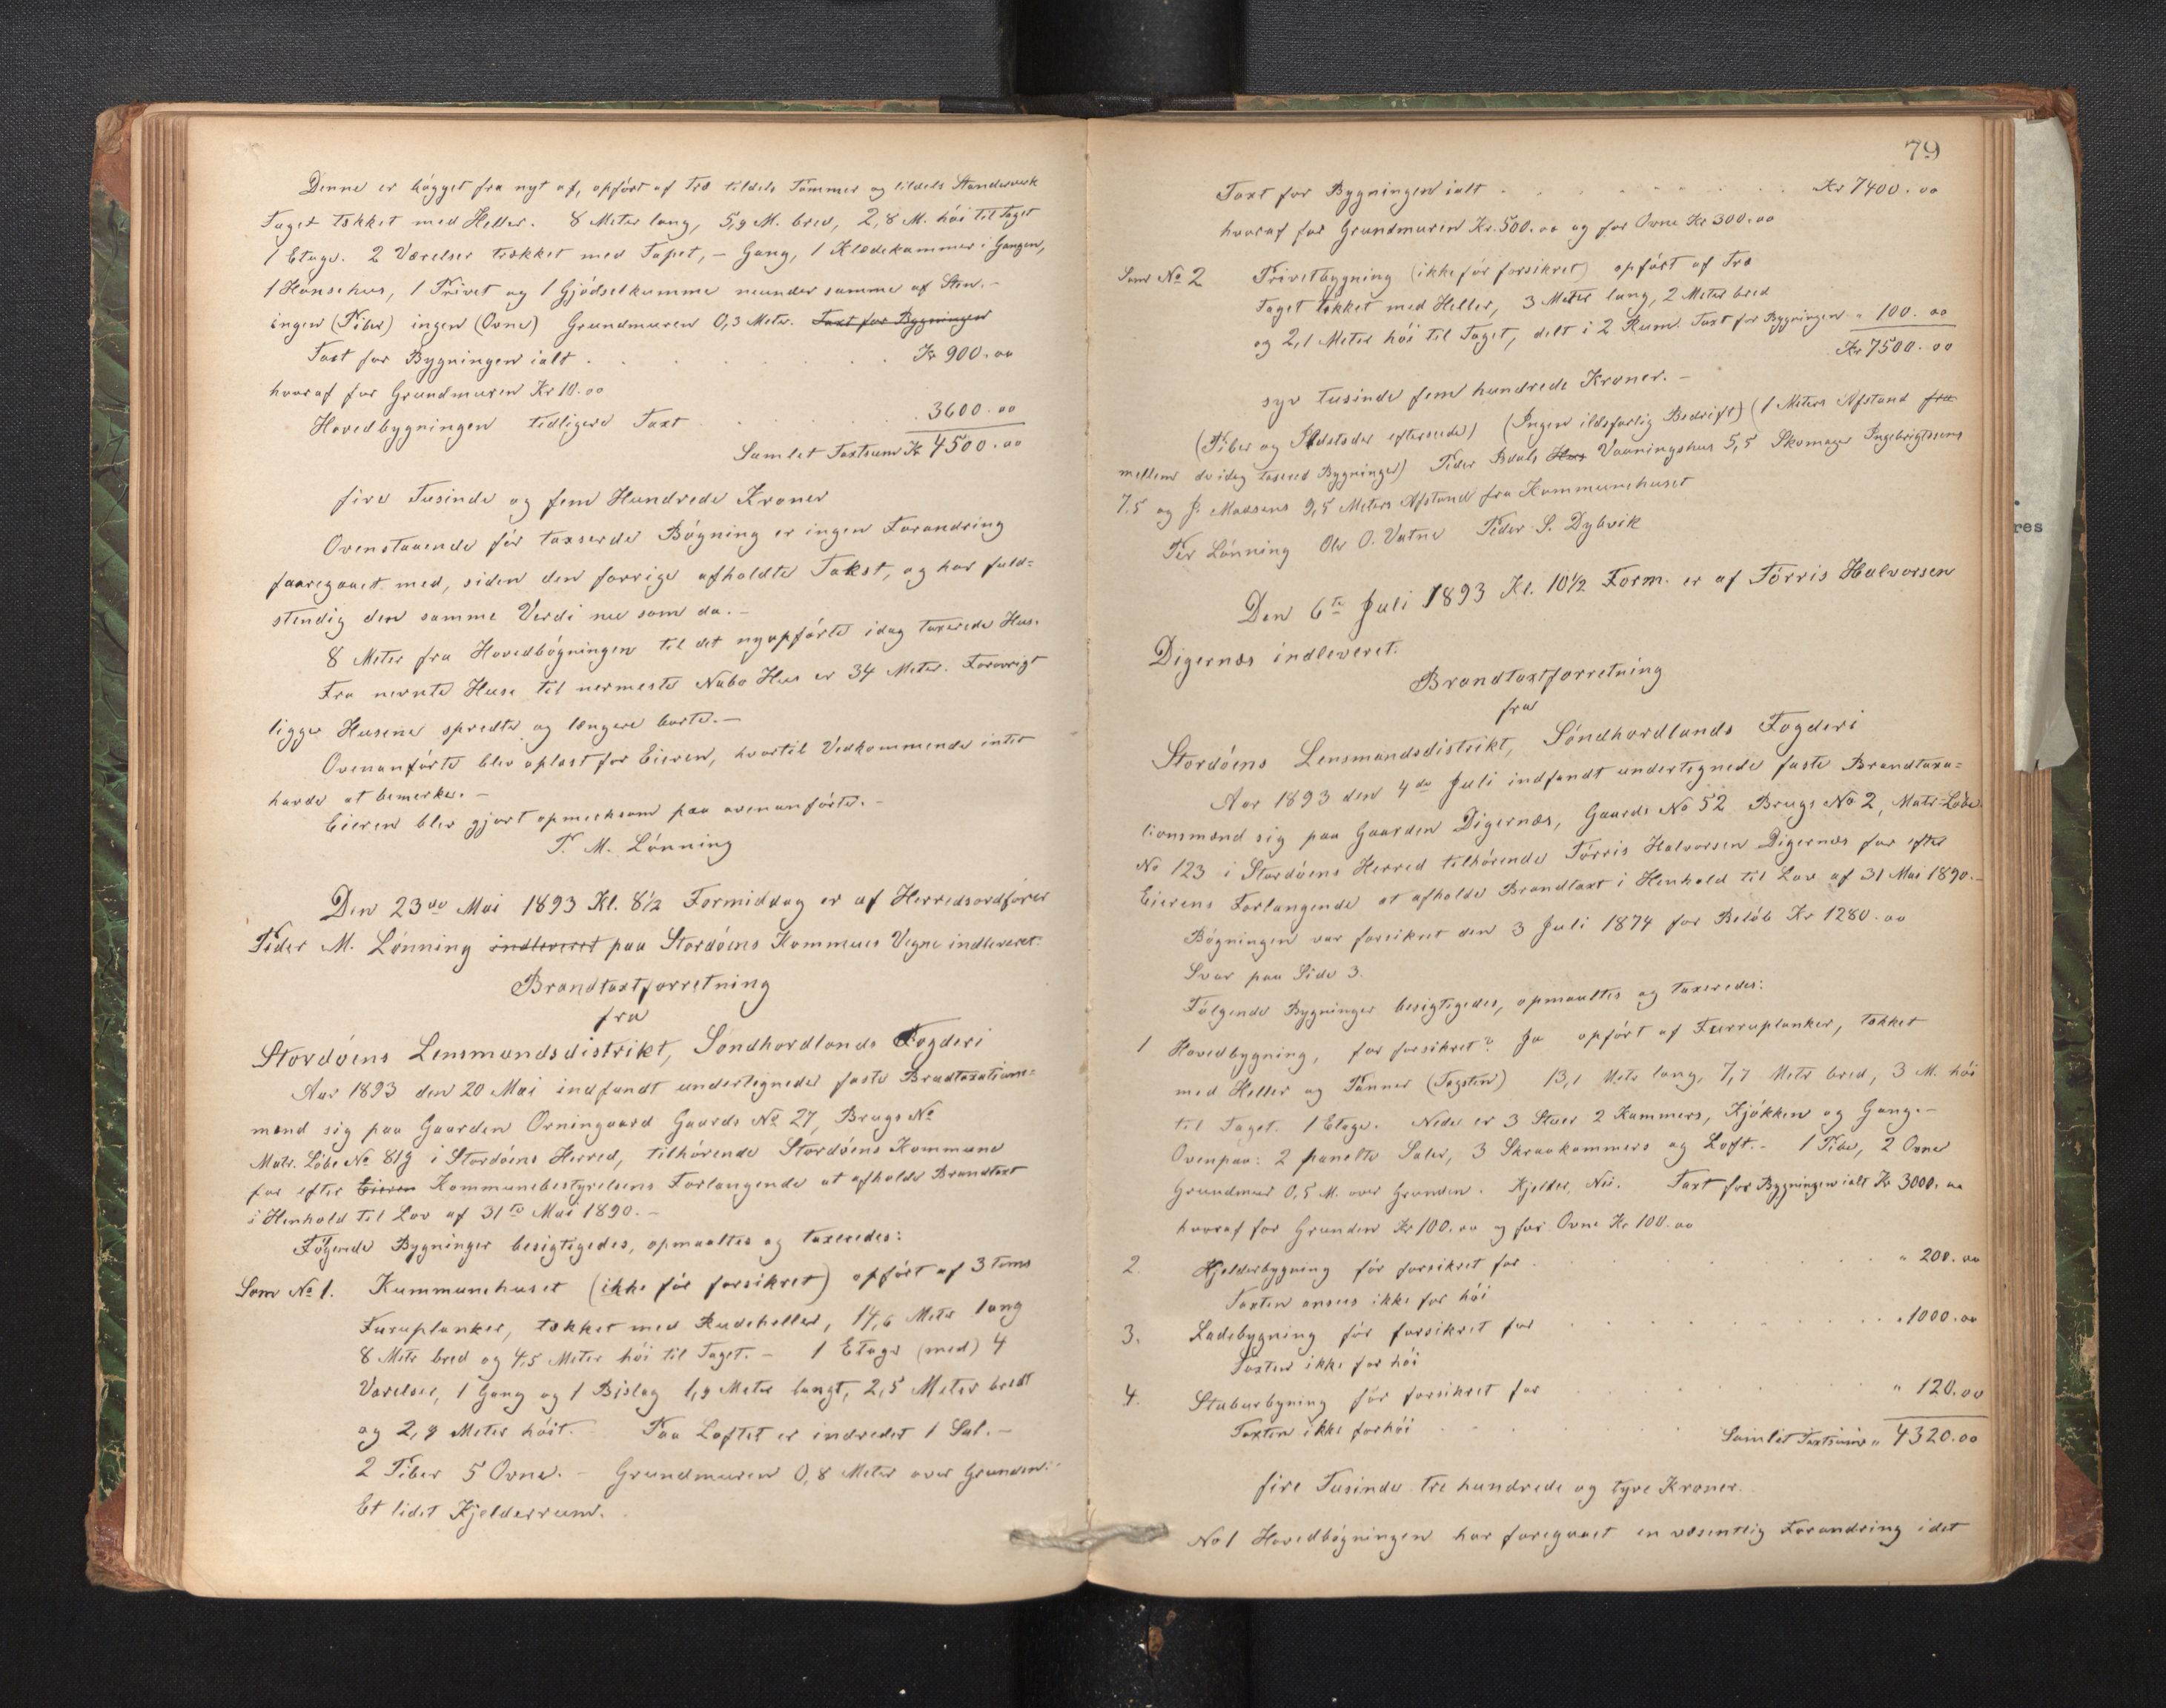 Denne er bógget fra nyt af, opfórt af Træ tildels Tømmer og tildels Standverk
Taget tækket med Heller. 8 Meter lang, 5,9 M. bred, 2,8 M. hói til Taget
1 Etage. 2 Værelser trækket med Tapet, – Gang, 1 Klædekammer i Gangen,
1 Hónsehus, 1 Privet og 1 Gjódselkumme neunder samme af Sten. –
ingen (Piber) ingen (Ovne) Grundmuren 0,3 Meter. Taxt for Bygningen
Taxt for Bygningen ialt . . . . . Kr 900.00
hvoraf for Grundmuren Kr 10.00
Hovedbygningen tidligere Taxt . . . . 3600.00
Samlet Taxtsum Kr 4500.00
fire Tusinde og fem Hundrede Kroner
Ovenstaaende fór taxserede Bógning er ingen Forandring
faaregaaet med, siden den forrige afholdte Takst, og har fuld=
stendig den samme Verdi nu som da. –
8 Meter fra Hovedbógningen til det nyopfórte idag taxerede Hus.
Fra nevnte Huse til nermeste Nabo Hus er 34 Meter. Forøvrigt
ligger Husene spredte og længere borte. –
Ovenanfórte blev oplæst for Eieren, hvortil Vedkommende intet
havde at bemerke. –
Eieren blev gjort opmerksom paa ovenanfórte. –
P. M. Lónning
Den 23de Mai 1893 Kl. 8½ Formiddag er af Herredsordfórer
Peder M. Lónning indleveret paa Stordóens Kommues Vegne indleveret:
Brandtaxtforretning
fra
Stordóens Lensmandsdistrikt, Sóndhordlands Fogderi
Aar 1893 den 20 Mai indfandt undertegnede faste Brandtaxations=
mænd sig paa Gaarden Orningaard Gaards No 27, Brugs No
Matr. Lóbe No 81g i Stordóens Herred, tilhórende Stordóens Kommune
for efter Eieren Kommunebestyrelsens Forlangende at afholde Brandtaxt
i Henhold til Lov af 31te Mai 1890. –
Fógende Bygninger besigtigedes, opmaaltes og taxeredes:
Som No 1. Kummunehuset (ikke fór forsikret) opfórt af 3 toms
Furuplanker, tækket med Rudeheller, 14,6 Meter lang
8 Metr bred og 4,5 Meter hói til Taget. – 1 Etage (med) 4
Værelser, 1 Gang og 1 Bislag 1,9 Meter langt, 2,5 Meter bredt
og 2,9 Meter hóit. Paa Loftet er indredet 1 Sal. –
2 Piber 5 Ovne. – Grundmuren 0,8 Meter over Grunden.
Et lidet Kjelderrum.
79
Taxt for Bygningen ialt . . . . . Kr 7400.00
hvoraf for Grundmuren Kr. 500.00 og for Ovne Kr 300.00
Som No 2 Privetbygning (ikke fór forsikret) opfórt af Træ
Taget tækket med Heller, 3 Meter lang, 2 Meter bred
og 2,1 Meter hói til Taget, delt i 2 Rum. Taxt for Bygningen " 100.00
Kr 7500.00
syv tusinde fem hundrede Kroner. –
(Piber og Ildsteder efterseede) (Ingen ildsfarlig Bedrift) (1 Meters Afstand fra
mellem de idag taxered Bygninger) Peder Hus Vaaningshus 5,5 Skomager Ingebrigtsens
7.5 og J. Madsens 9,5 Meters Afstand fra Kommunehuset
Per Lónning Ole O. Vatne Peder S. Dybvik
Den 6te Juli 1893 Kl. 10½ Form. er af Tórris Halvorsen
Digernæs indleveret:
Brandtaxtforretning
fra
Stordóens Lensmandsdistrikt, Sóndhordlands Fogderi
Aar 1893 den 4de Juli indfandt undertegnede faste Brandtaxa=
tionsmænd sig paa Gaarden Digernæs, Gaards No 52 Brugs No 2, Matr Lóbe
No 123 i Stordóens Herred tilhórende Tórris Halvorsen Digernæs for efter
Eierens Forlangende at afholde Brandtaxt i Henhold til Lov af 31 Mai 1890. –
Bógningen var forsikret den 3 Juli 1874 for Belób Kr 1280.00
Svar paa Side 3.
Fólgende Bygninger besigtigedes, opmaaltes og taxeredes:
1 Hovedbygning, for forsikret? Ja opfórt af Furruplanker, tækket
med Heller og Panner (Tagsten) 13,1 Metr lang, 7,7 Metr bred, 3 M. hói
til Taget. 1 Etage. Nede er 3 Stuer 2 Kammers, Kjókken og Gang. –
Ovenpaa: 2 panelte Saler, 3 Skraakammers og Loft. – 1 Pibe, 2 Ovne
Grundmur 0,5 M. over Grunden. Kjelder, Nei. Taxt for Bygningen ialt Kr 3000.00
hvoraf for Grunden Kr 100.00 og for Ovne Kr 100.00
2. Kjelderbygning fór forsikret for . . . . " 200.00
Taxten ansees ikke for hói
3. Ladebygning fór forsikret for . . . . " 1000.00
Taxten ikke for hói
4. Staburbyning fór forsikret for . . . . " 120.00
Taxten ikke forhói . . . . Samlet Taxtsum " 4320.00
fire Tusinde tre hundrede og tyve Kroner.
No 1 Hovedbógningen har foregaaet en væsentlig Forandring idet
res